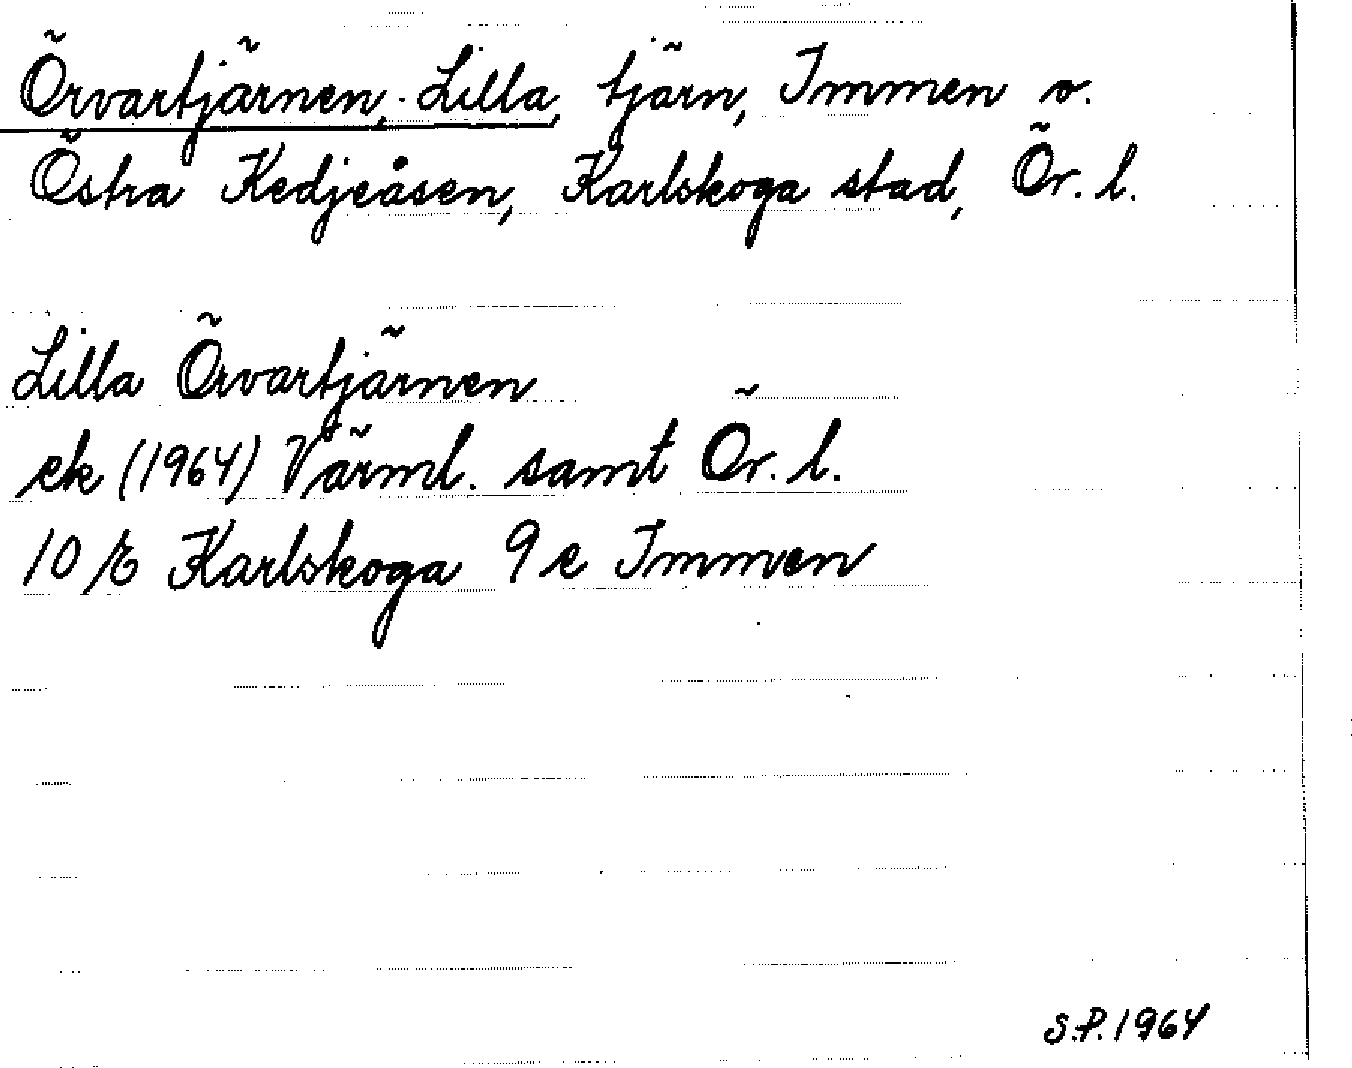 Örvartjärnen, Lilla, tjärn, Immen o.
Östra Kedjeåsen, Karlskoga stad, Ör. l.
Lilla Örvartjärnen
ek (1964) Värml. samt Ör. l.
10 E Karlskoga 9 e Immen
S.P. 1964